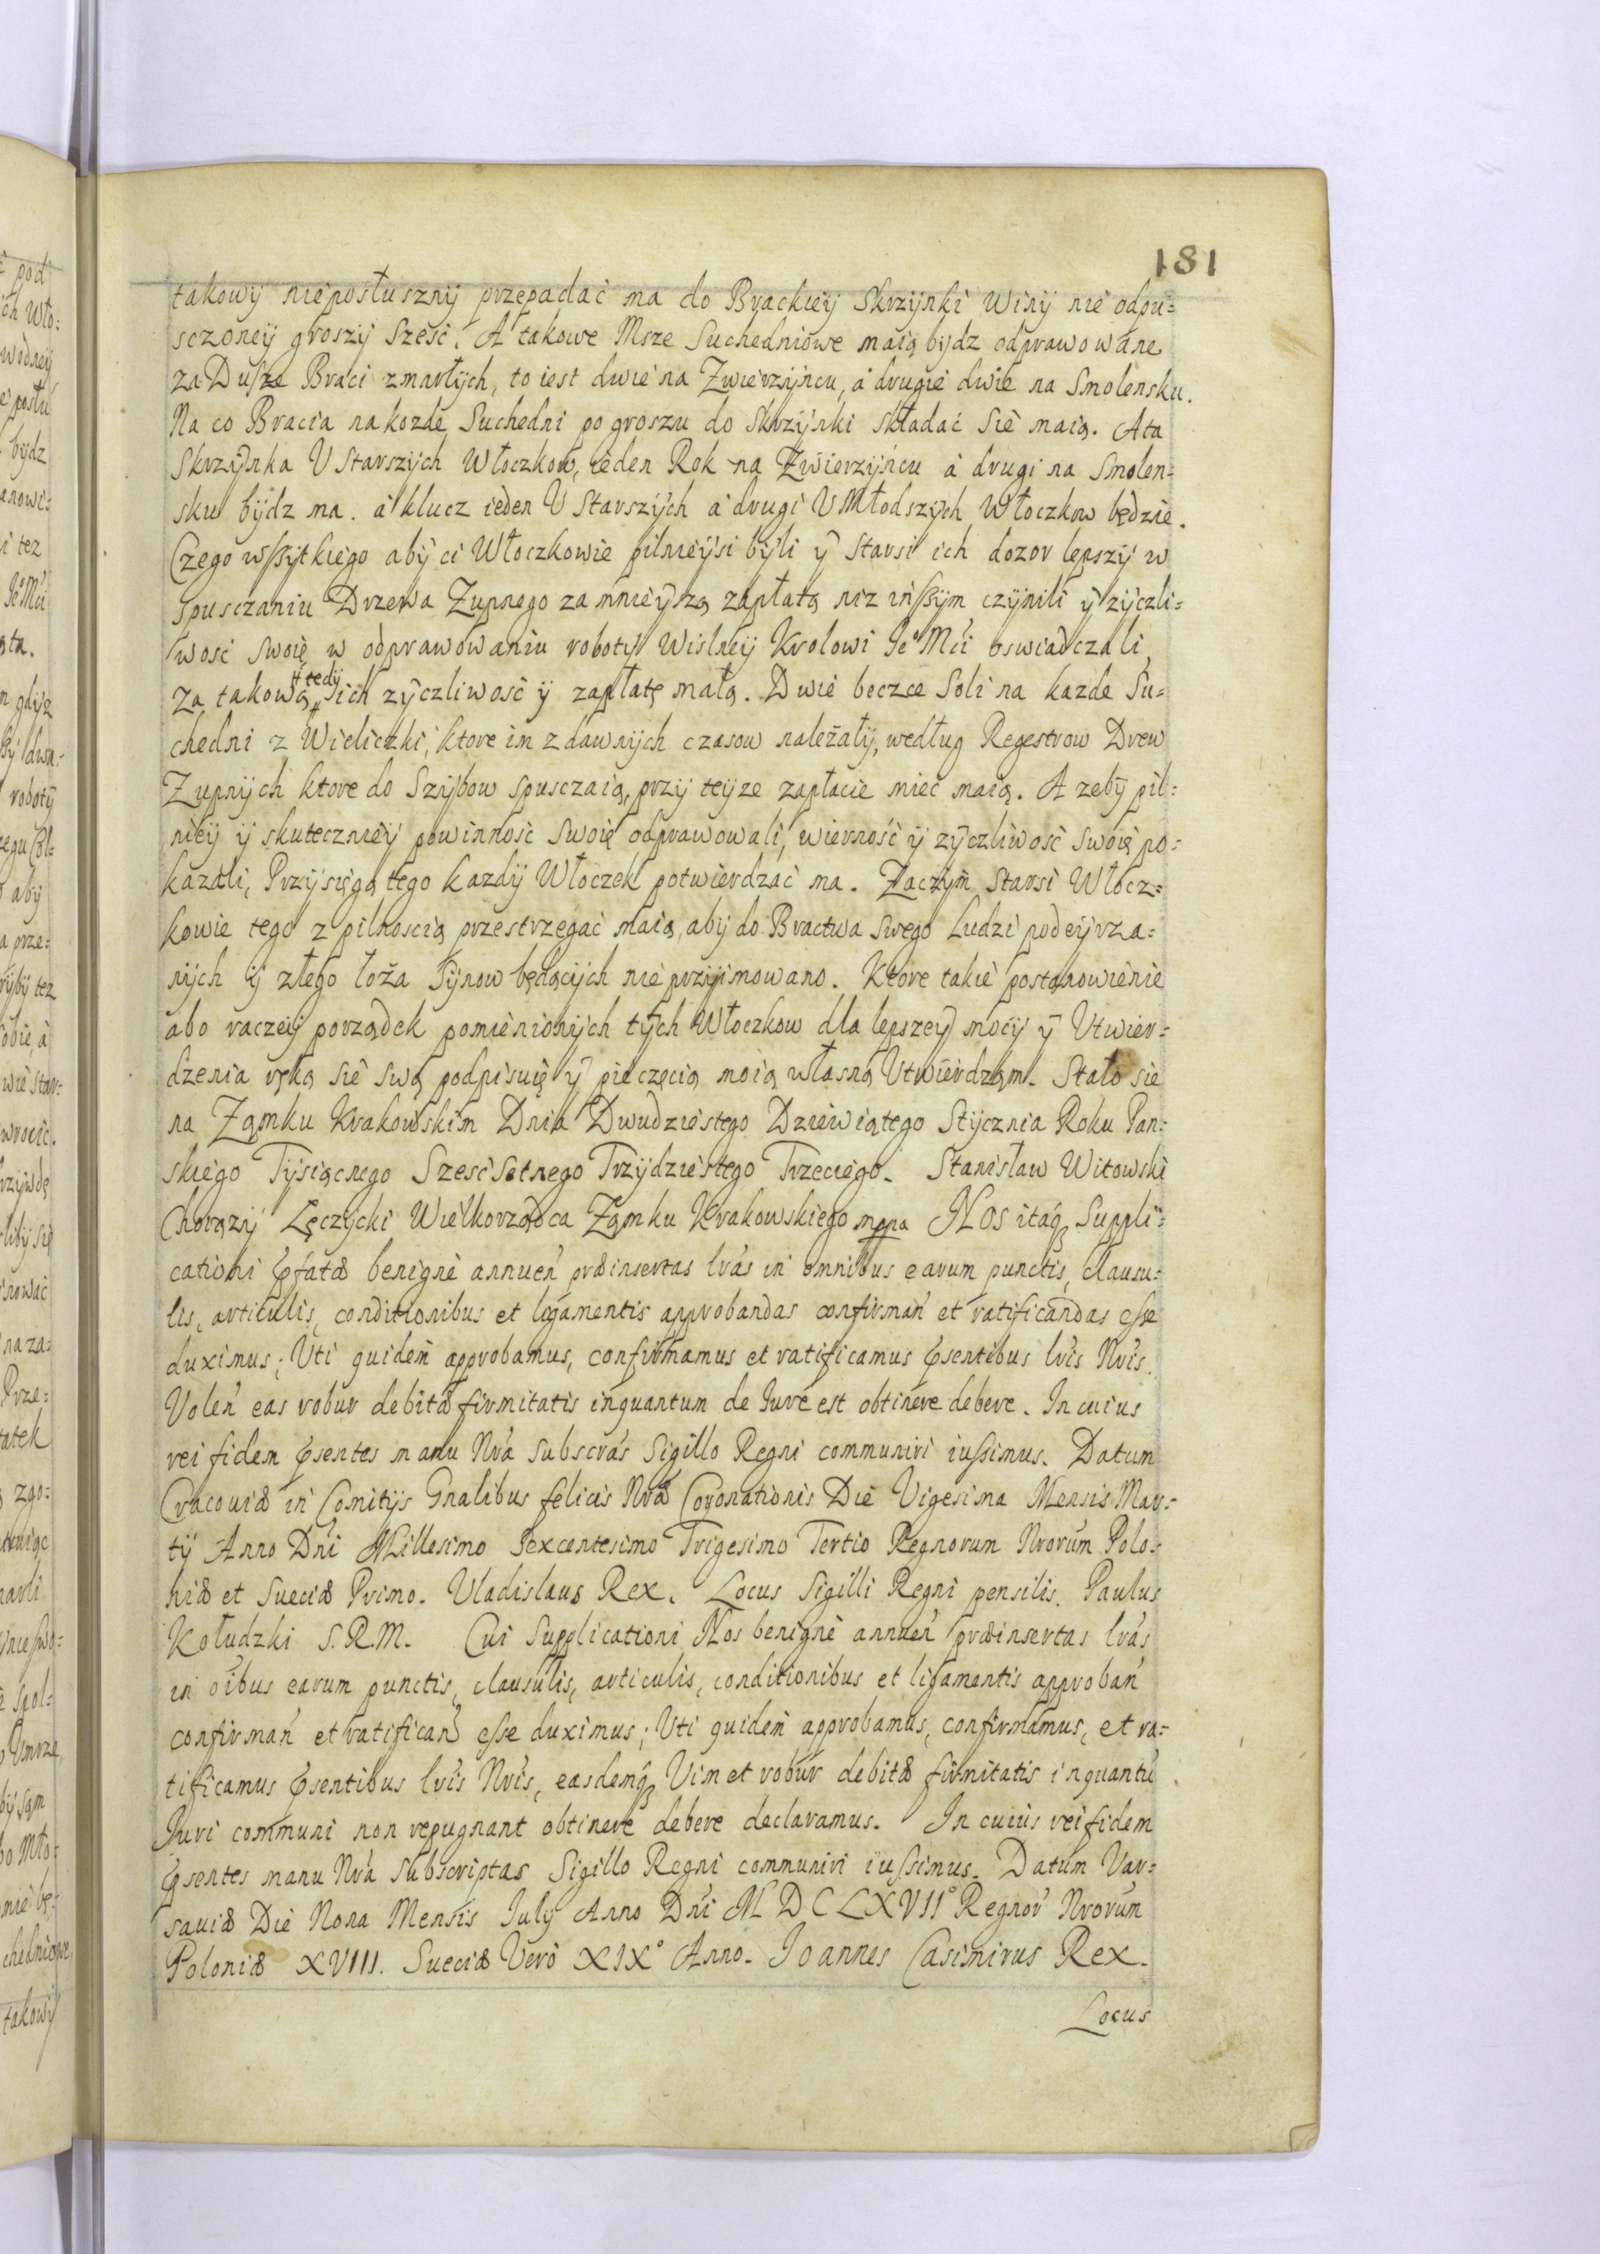 181
takowy nieposłuszny przepadać ma do Brackiey Skrzynki winy nie odpu=
sczoney groszy Sześć. A takowe Msze Suchedniowe maią bydz odprawowane
za Dusze Braci zmarłych, to iest dwie na Zwierzyncu, à drugie dwie na Smolensku.
Na co Bracia na kozde Suchedni po groszu do Skrzynki składać Sie maią. Ata
Skrzynka V Starszych Włoczkow, ieden Rok na Zwierzyncu à drugi na Smolen=
sku bydz ma. à klucz ieden V Starszych à drugi V Młodszych Włoczkow będzie.
Czego wszytkiego aby ci Włoczkowie pilnieysi byli y Starsi ich dozor lepszy w
spusczaniu Drzewa Zupnego za mnieyszą zapłatą niz inszym czynili y zyczli=
wość Swoię w odprawowaniu roboty Wislney Krolowi Je° Mći oswiadczali,
# tedy
Za takową # ich zyczliwość y zapłatę małą. Dwie beczce Soli na kazde Su=
chedni z Wieliczki, ktore im z dawnych czasow należały, według Regestrow Drew
Zupnych ktore do Szybow spusczaią, przy teyze zapłacie mieć maią. A zeby pil=
niey y skuteczniey powinność Swoię odprawowali, wierność y zyczliwość Swoię po=
kazali, Przysięgą tego kazdy Włoczek potwierdzać ma. Zaczym Starsi Włocz=
kowie tego z pilnoscią przestrzegać maią, aby do Bractwa Swego Ludzi podeyrza=
nych y złego łoża Synow będących nie przyimowano. Ktore takie postanowienie
abo raczey porządek pomienionych tych Włoczkow dla lepszey mocy y Vtwier=
dzenia ręką sie swą podpisuię y pieczęcią moią własną Vtwierdzam. Stało sie
na Zamku Krakowskim Dnia Dwudziestego Dziewiątego Stycznia Roku Pan=
skiego Tysiącnego Sześć Setnego Trzydziestego Trzeciego. Stanisław Witowski
Chorązy Lęczycki Wielkorządca Zamku Krakowskiego mppa NOS itaq₃ Suppli=
cationi p̃fatæ benignè annueń præinsertas lrás in omnibus earum punctis, clausu=
lis, articulis, conditionibus et ligamentis approbandas confirmań et ratificandas esse
duximus; Vti quidem̃ approbamus, confirmamus et ratificamus p̃sentibus lrís Nrís.
Voleń eas robur debitæ firmitatis inquantum de Iure est obtinere debere. In cuius
rei fidem p̃sentes manu Nrá Subscrás Sigillo Regni communiri iussimus. Datum
Cracouiæ in Comitijs Gnalibus felicis Nræ Coronationis Die Vigesima Mensis Mar=
tij Anno Dńi Millesimo Sexcentesimo Trigesimo Tertio Regnorum Nrorúm Polo=
niæ et Sueciæ Primo. Vladislaus Rex. Locus Sigilli Regni pensilis. Paulus
Kołudzki S.R.M. Cui Supplicationi Nos benignè annueń præinsertas lrás
in oíbus earum punctis, clausulis, articulis, conditionibus et ligamentis approbań
confirmań et ratificań esse duximus; Vti quidem̃ approbamus, confirmamus, et ra=
tificamus p̃sentibus lrís Nrís, easdemq₃ Vim et robur debitæ firmitatis inquantu᷃
Iuri communi non repugnant obtinere debere declaramus. In cuius rei fidem
p̃sentes manu Nrá Subscriptas Sigillo Regni communiri iussimus. Datum Var=
sauiæ Die Nona Mensis Iulij Anno Dńi MDCLXVII° Regnor᷃ Nrorúm
Poloniæ XVIII. Sueciæ Verò XIX° Anno. Ioannes Casimirus Rex.
Locus